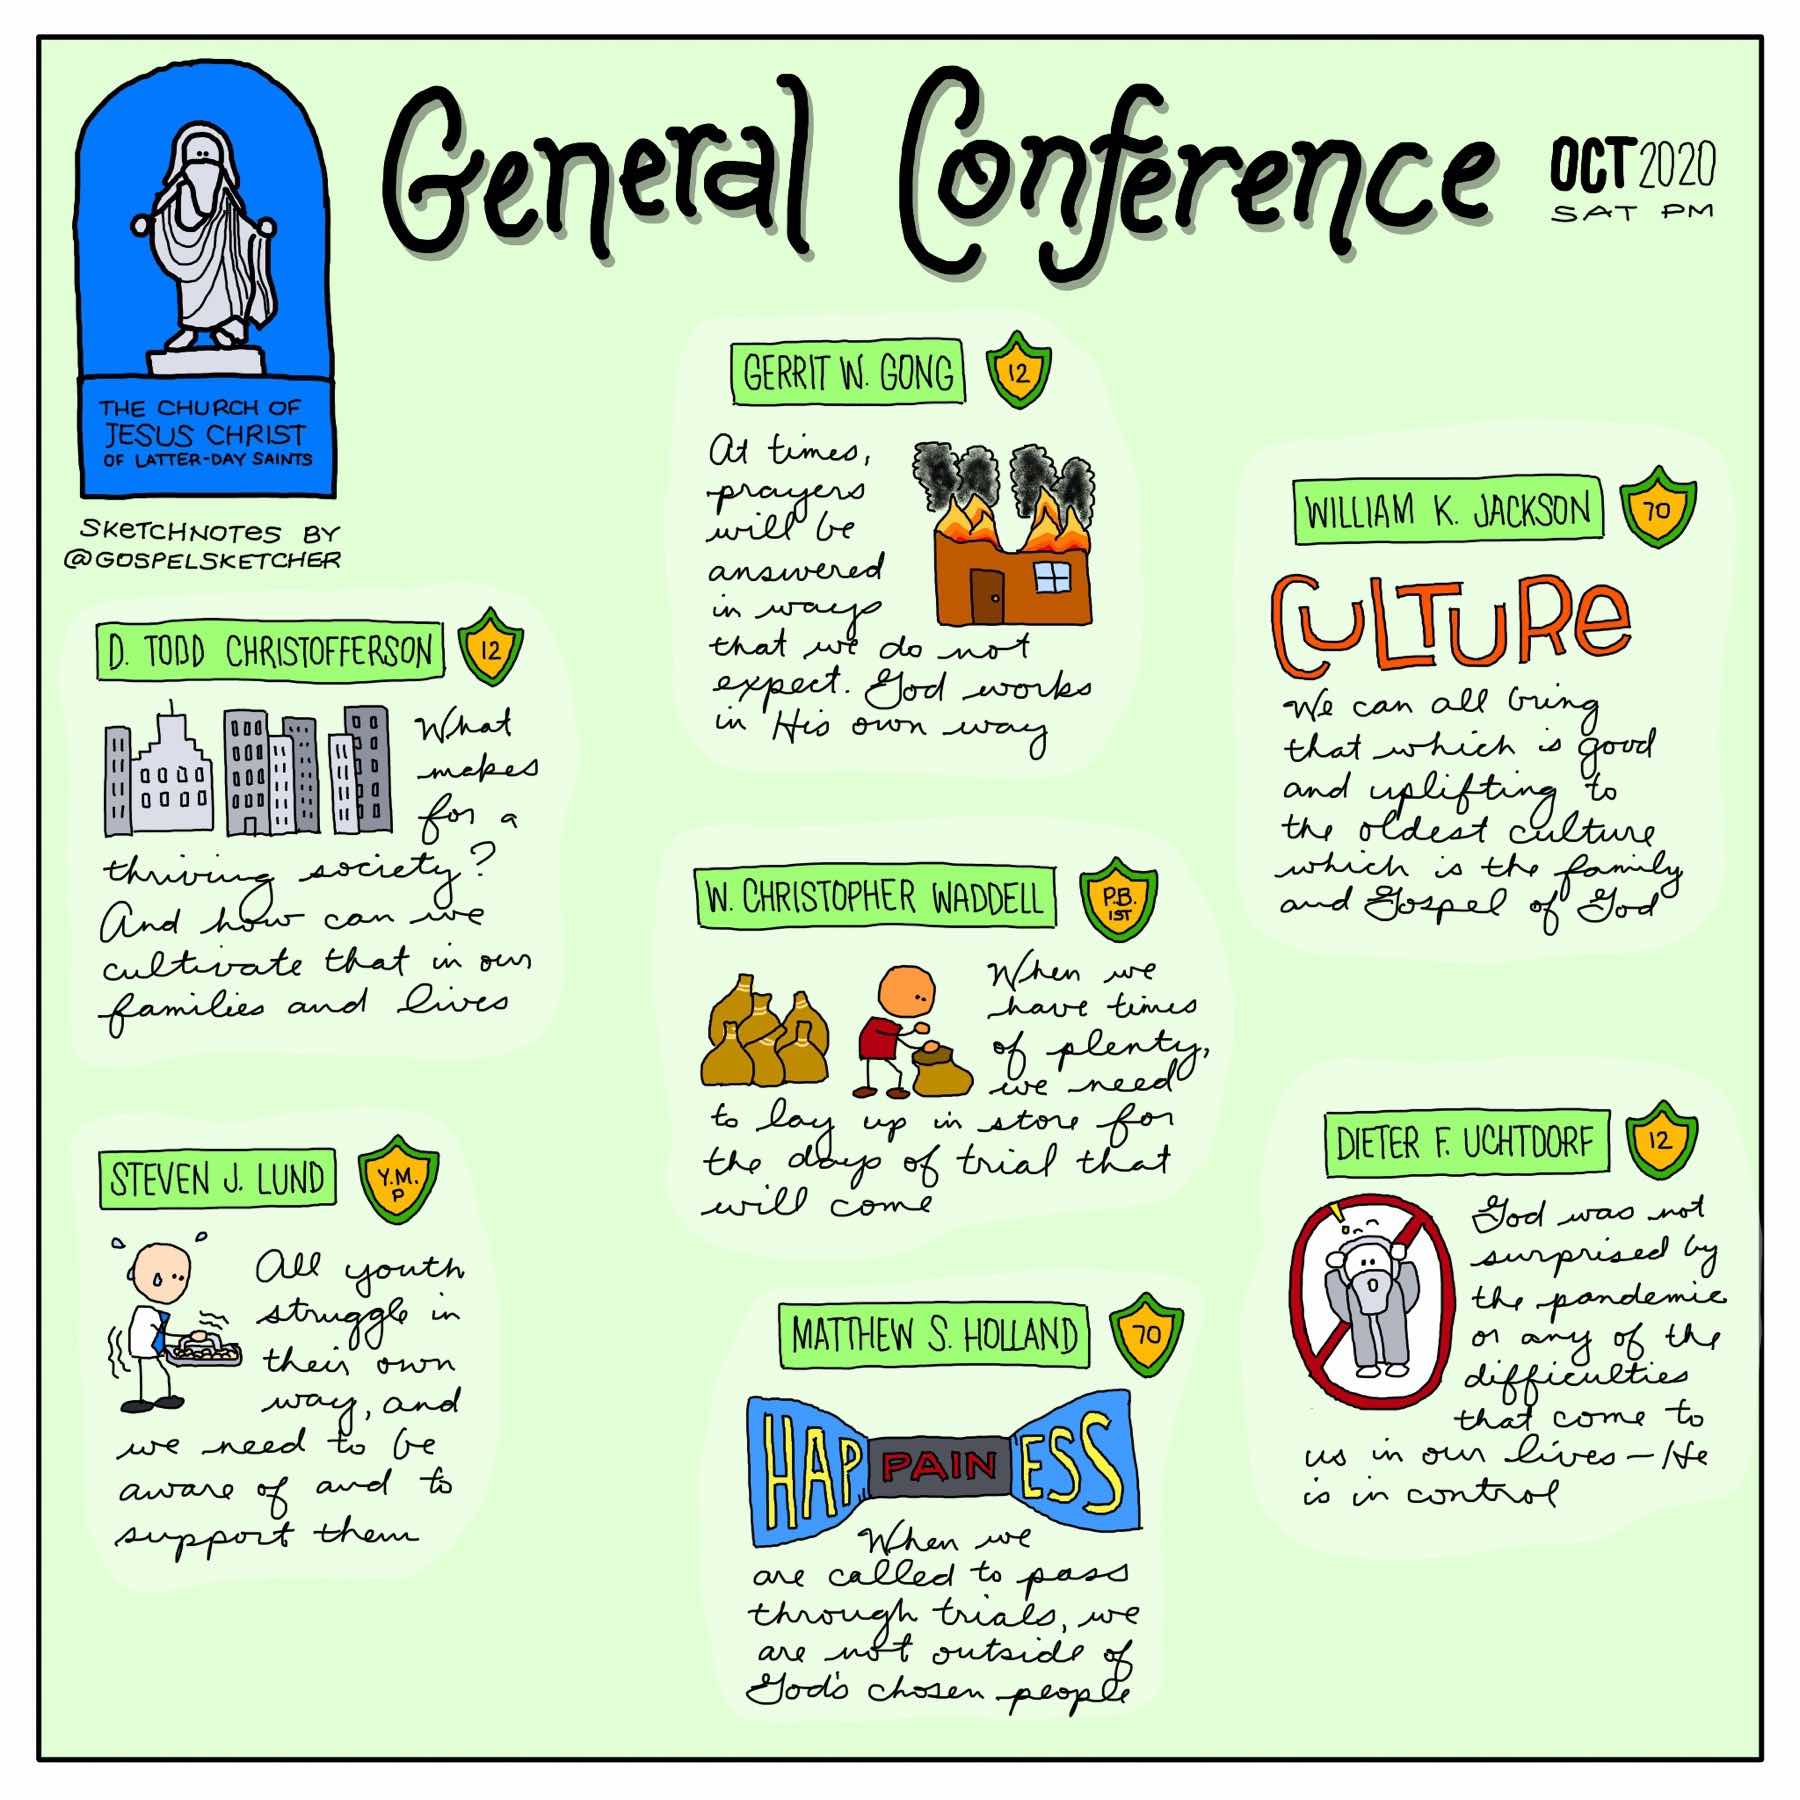 General Conference
OCT 2020
SAT PM
THE CHURCH OF
JESUS CHRIST
OF LATTER-DAY SAINTS
SKETCHNOTES BY
@GOSPELSKETCHER
D. TODD CHRISTOFFERSON
12
What
makes
for a
thriving society?
And how can we
cultivate that in our
families and lives
STEVEN J. LUND
Y.M.
P
All youth
struggle in
their own
way, and
we need to be
aware of and to
support them
GERRIT W. GONG
12
At times,
prayers
will be
answered
in ways
that we do not
expect. God works
in His own way
W. CHRISTOPHER WADDELL
P.B.
1ST
When we
have times
of plenty,
we need
to lay up in store for
the days of trial that
will come
MATTHEW S. HOLLAND
70
HAP PAIN ESS
When we
are called to pass
through trials, we
are not outside of
God's chosen people
WILLIAM K. JACKSON
70
CULTURE
We can all bring
that which is good
and uplifting to
the oldest culture
which is the family
and Gospel of God
DIETER F. UCHTDORF
12
God was not
surprised by
the pandemic
or any of the
difficulties
that come to
us in our lives – He
is in control